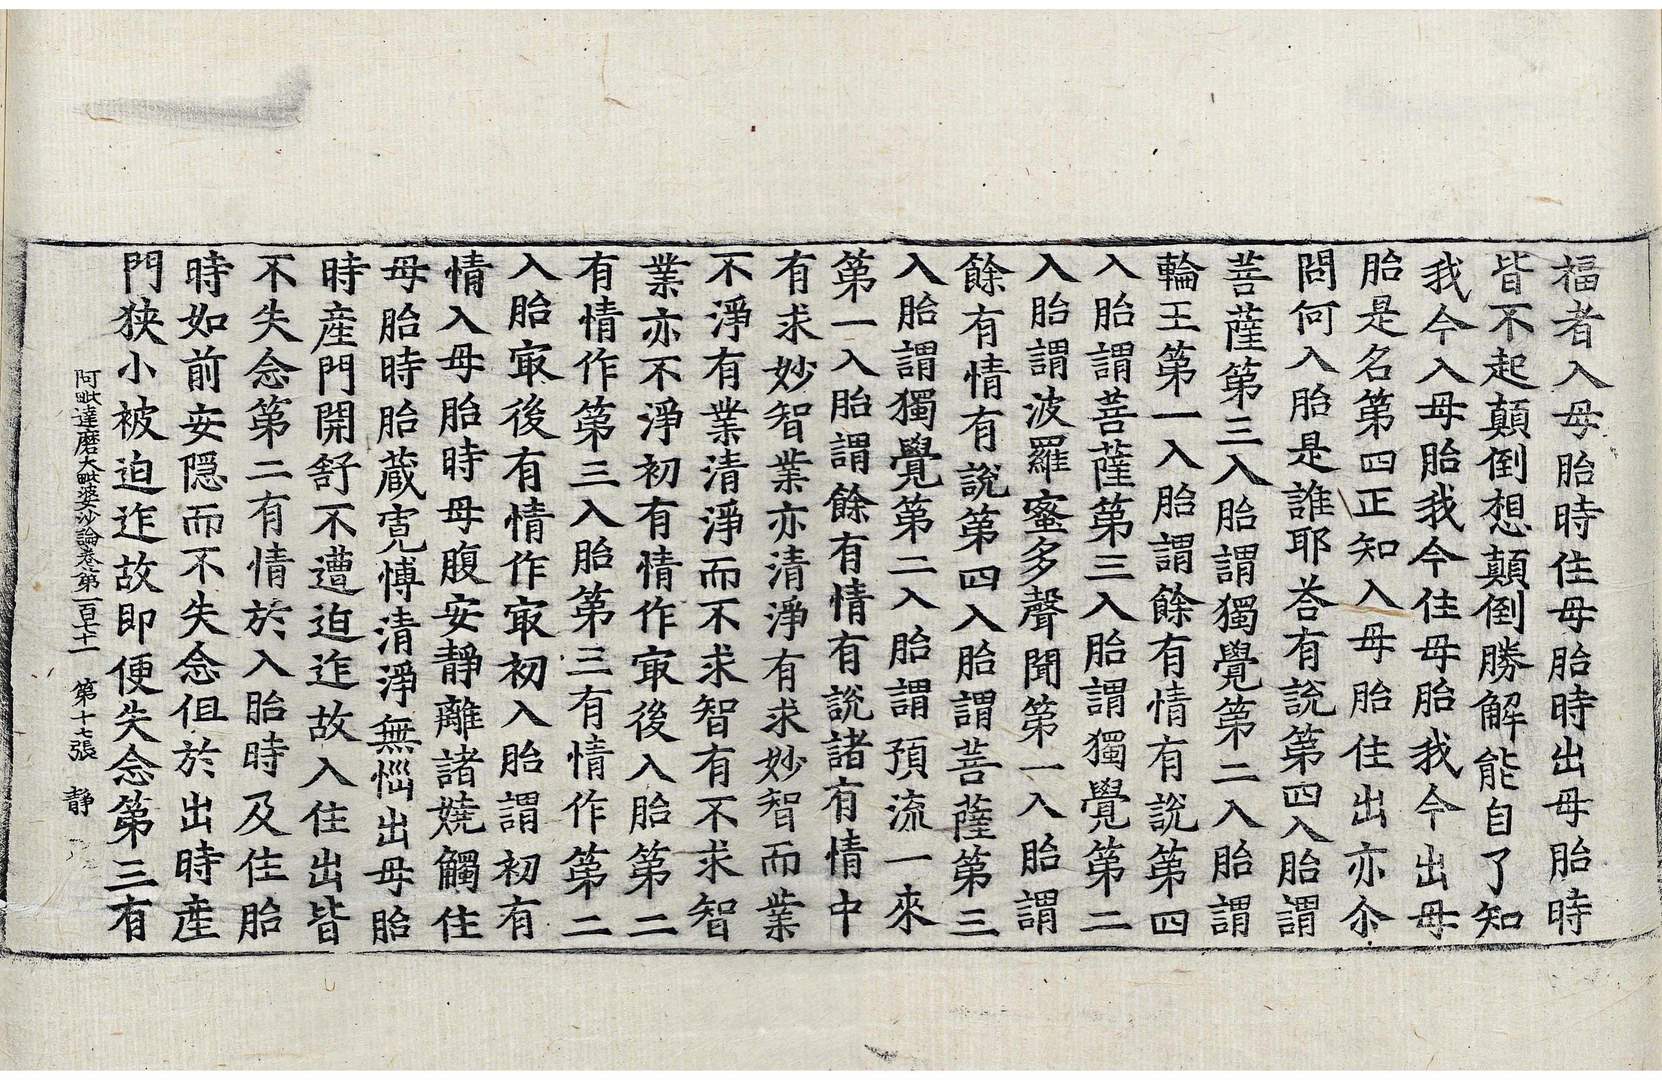 福者入母胎時住母胎時出母胎時
皆不起顛倒想顛倒勝解能自了知
我今入母胎我今住母胎我今出母
胎是名第四正知入母胎住出亦尒
問何入胎是誰耶荅有說第四入胎謂
菩薩第三入胎謂獨覺第二入胎謂
輪王第一入胎謂餘有情有說第四
入胎謂菩薩第三入胎謂獨覺第二
入胎謂波羅蜜多聲聞第一入胎謂
餘有情有說第四入胎謂菩薩第三
入胎謂獨覺第二入胎謂預流一來
第一入胎謂餘有情有說諸有情中
有求妙智業亦清淨有求妙智而業
不淨有業清淨而不求智有不求智
業亦不淨初有情作㝡後入胎第二
有情作第三入胎第三有情作第二
入胎㝡後有情作㝡初入胎謂初有
情入母胎時母腹安靜離諸嬈觸住
母胎時胎藏寬愽清淨無惱出母胎
時產門開舒不遭迫迮故入住出皆
不失念第二有情於入胎時及住胎
時如前安隱而不失念但於出時產
門狹小被迫迮故即便失念第三有
阿毗達磨大毗婆沙論卷第一百七十一 第十七張 靜